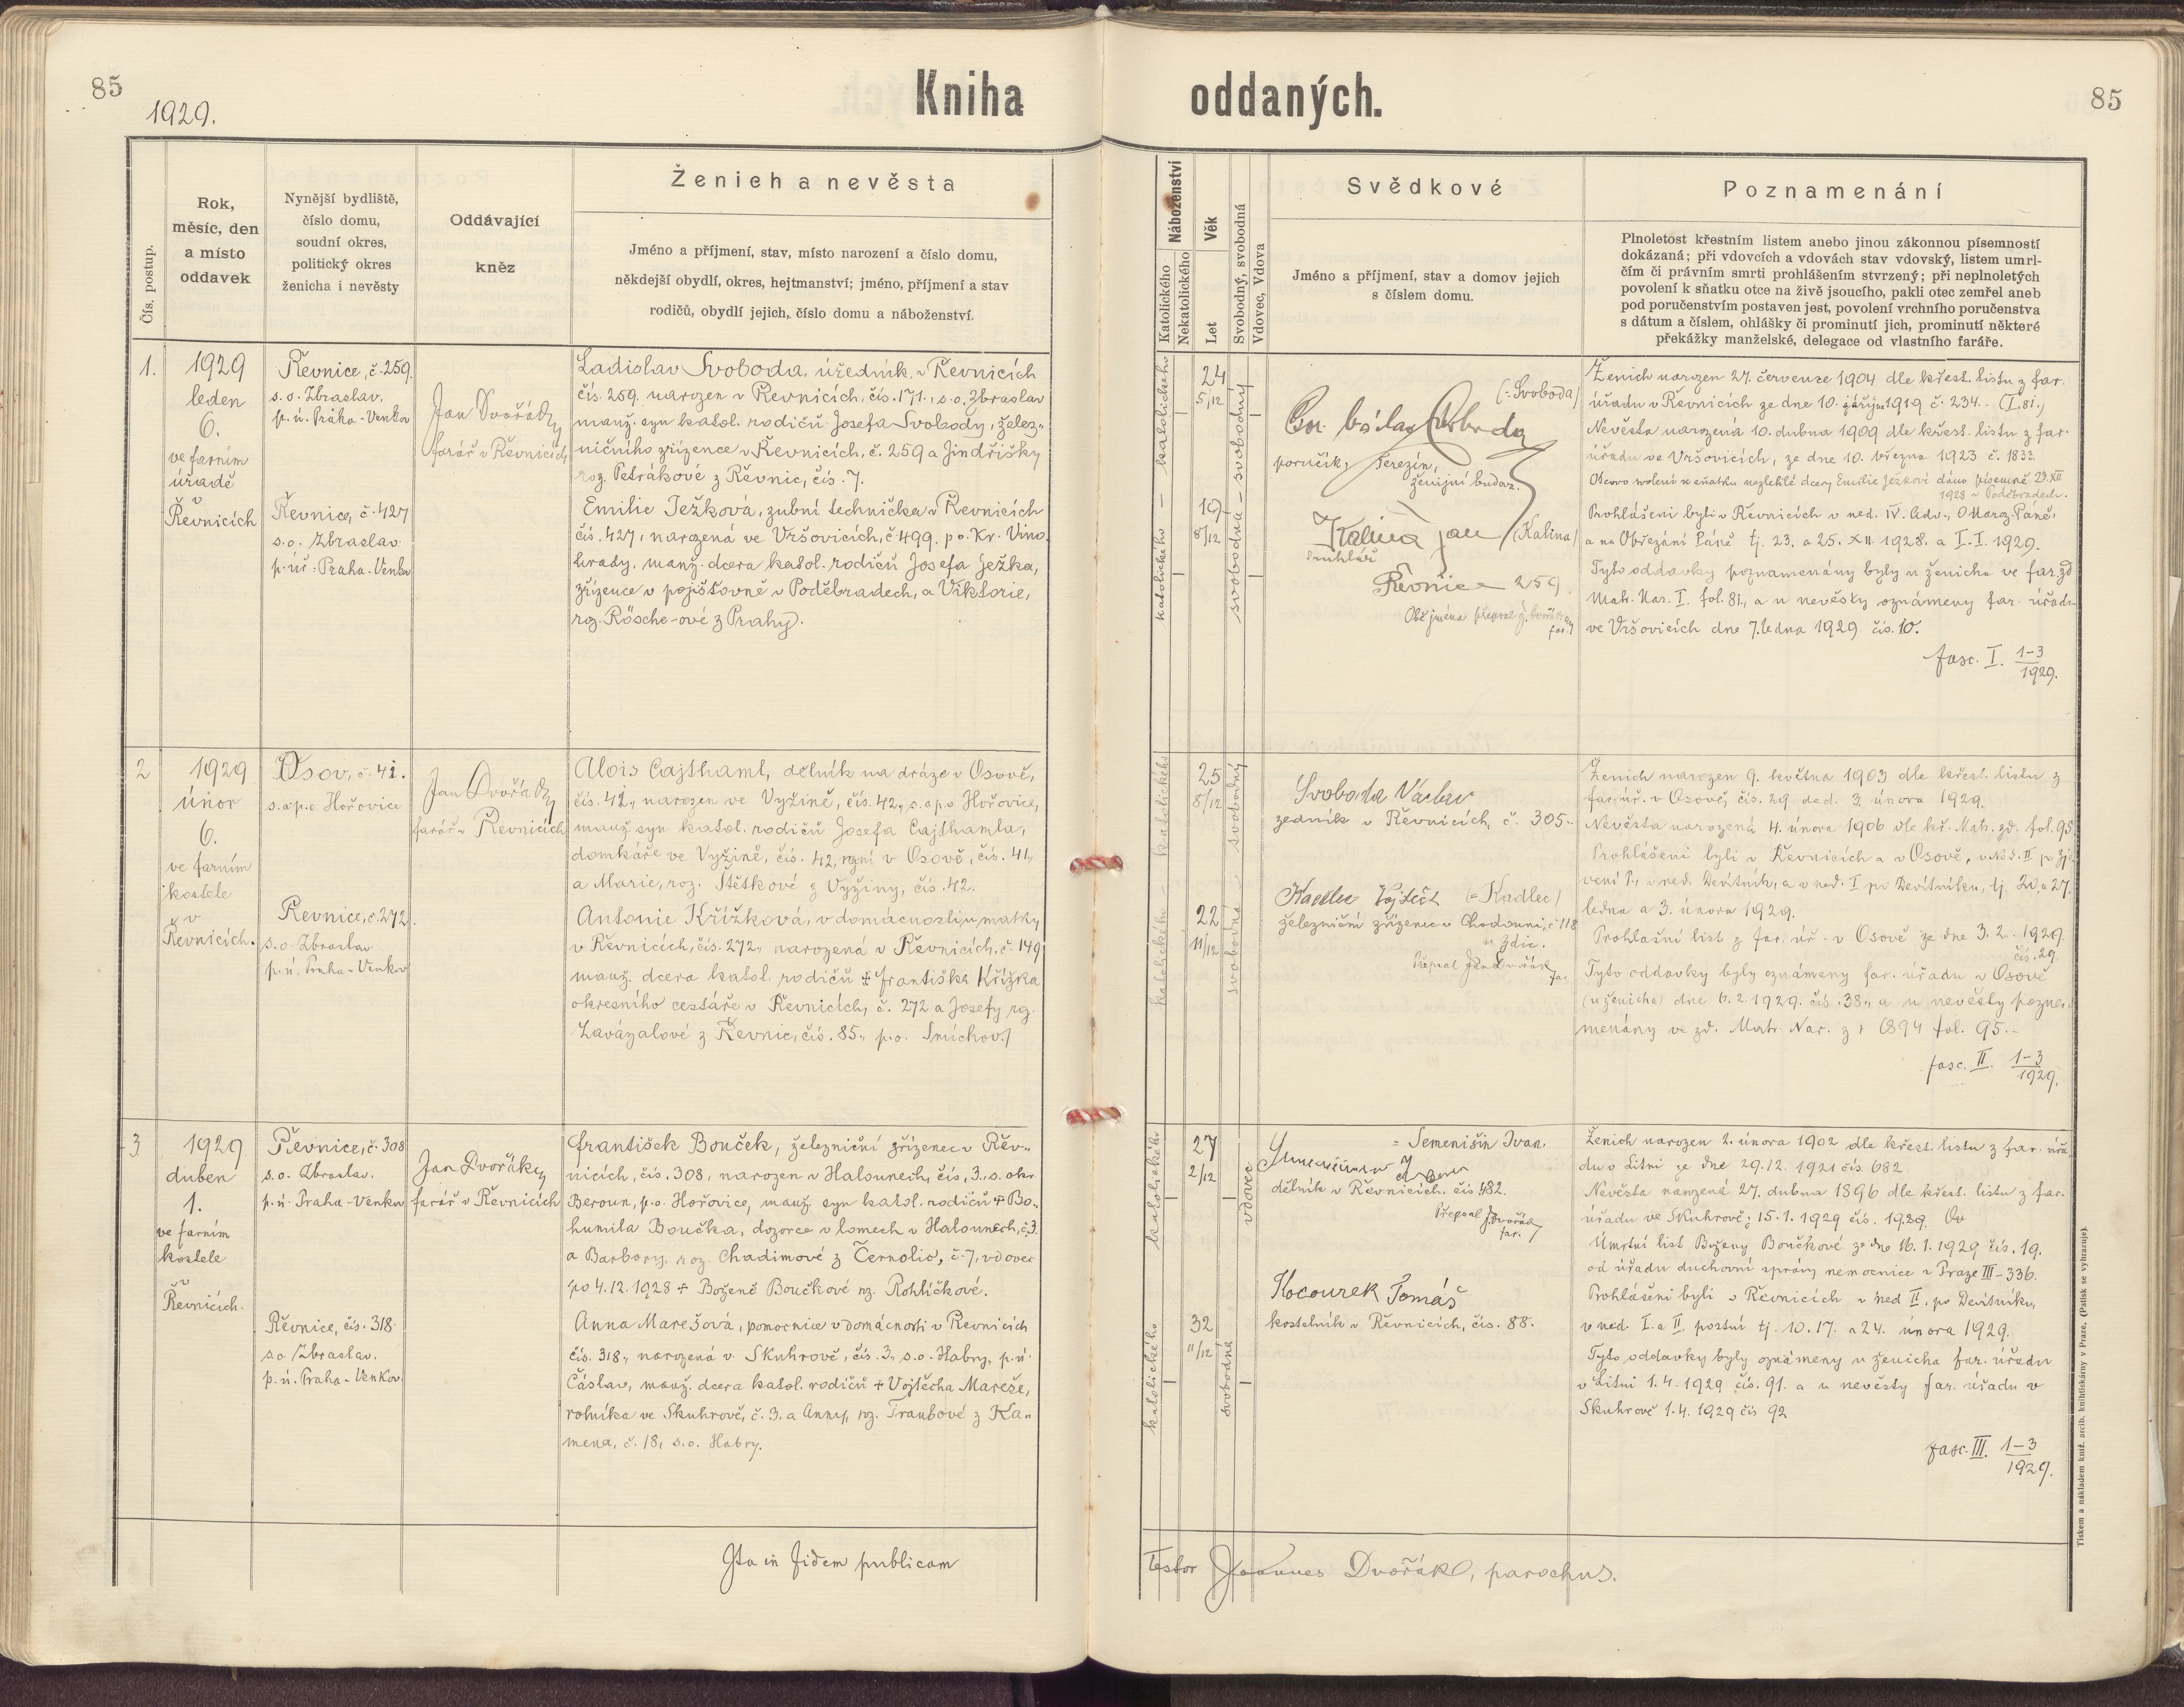 85
1929.
Kniha oddaných.
85
Čís. postup.
Rok,
měsíc, den
a místo
oddavek
Nynější bydliště,
číslo domu,
soudní okres,
politický okres
ženicha i nevěsty
Oddávající
kněz
Ženich a nevěsta
Jméno a příjmení, stav, místo narození a číslo domu,
někdejší obydlí, okres, hejtmanství; jméno, příjmení a stav
rodičů, obydlí jejich, číslo domu a náboženství.
Náboženství
Katolického
Nekatolického
Věk
Let
Svobodný, svobodná
Vdovec, Vdova
Svědkové
Jméno a příjmení, stav a domov jejich
s číslem domu.
Poznamenání
Plnoletost křestním listem anebo jinou zákonnou písemností
dokázaná; při vdovcích a vdovách stav vdovský, listem umrl-
čím či právním smrti prohlášením stvrzený; při neplnoletých
povolení k sňatku otce na živě jsoucího, pakli otec zemřel aneb
pod poručenstvím postaven jest, povolení vrchního poručenstva
s dátum a číslem, ohlášky či prominutí jich, prominutí některé
překážky manželské, delegace od vlastního faráře.
1.
1929
leden
6.
ve farním
úřadě
v
Řevnicích
Řevnice, č. 259.
s. o. Zbraslav,
p. ú. Praha-Venkov
Řevnice, č. 427
s. o. Zbraslav
p. úř. Praha-Venkov
Jan Dvořák,
farář v Řevnicích
Ladislav Svoboda, úředník, v Řevnicích
čís. 259, narozen v Řevnicích, čís. 171., s. o. Zbraslav
manž. syn katol. rodičů Josefa Svobody, želez-
ničního zřízence v Řevnicích, č. 259 a Jindřišky
roz. Petrákové z Řevnic, čís. 7.
Emilie Ježková, zubní technička v Řevnicích
čís. 427, narozená ve Vršovicích, č 499. p. o. Kr. Vino-
hrady, manž. dcera katol. rodičů Josefa Ježka,
zřízence v pojišťovně v Poděbradech, a Viktorie,
roz. Rösche-ové z Prahy.
katolického
katolického
24
5/12
19
8/12
svobodný
svobodná
(=Svoboda)
poručík, Terezín,
ženijní budov.
Kalina Jan (Kalina)
truhlář
Řevnice 259.
Obě jména přepsal J. Dvořák
far.
Ženich narozen 27. července 1904 dle křest. listu z far.
úřadu v Řevnicích ze dne 10. října 1919 č. 234. (I. 81.)
Nevěsta narozená 10. dubna 1909 dle křest. listu z far.
úřadu ve Vršovicích, ze dne 10. března 1923 č. 1833
Otcovo svolení ke sňatku nezletilé dcery Emilie Ježkové dáno písemně 29. XII
1928 v Poděbradech.
Prohlášeni byli v Řevnicích v ned. IV. Adv., O Naroz. Páně,
a na Obřezání Páně tj. 23. a 25. XII 1928. a I. I. 1929.
Tyto oddavky poznamenány byly u ženicha ve far. zd
Matr. Nar. I. fol. 81, a u nevěsty oznámeny far. úřadu
ve Vršovicích dne 7. ledna 1929 čís. 10.
fasc. I. 1-3
1929.
2
1929
únor
6.
ve farním
kostele
v
Řevnicích.
Osov, č. 41.
s. a p. o Hořovice
Řevnice, č. 272.
s. o. Zbraslav.
p. ú. Praha-Venkov
Jan Dvořák,
farář v Řevnicích
Alois Cajthaml, dělník na dráze v Osově,
čís. 41, narozen ve Vyžině, čís. 42., s. a p. o Hořovice,
manž. syn katol. rodičů Josefa Cajthamla,
domkáře ve Vyžině, čís. 42, nyní v Osově, čís. 41,
a Marie, roz. Štětkové z Vyžiny, čís. 42.
Antonie Křížková, v domácnosti u matky
v Řevnicích, čís. 272, narozená v Řevnicích, č. 149
manž. dcera katol. rodičů + Františka Křížka
okresního cestáře v Řevnicích, č. 272 a Josefy roz.
Zavázalové z Řevnic, čís. 85., p. o. Smíchov.
katolického
katolického
25
8/12
22
11/12
svobodný
svobodná
Svoboda Václav
zedník v Řevnicích, č. 305.
Kadlec Vojtěch (=Kadlec)
železniční zřízenec v Chodouni, č 118
u Zdic.
Přepsal Jan Dvořák
fa.
Ženich narozen 9. května 1903 dle křest. listu z
far. úř. v Osově, čís. 29 ded. 3. února 1929.
Nevěsta narozená 4. února 1906 dle kř. Matr. zd. fol. 95.
Prohlášeni byli v Řevnicích a v Osově, v Ned. II po Zje
vení P., v ned. Devítník, a v ned. I. po Devítníku, tj. 20. a 27.
ledna a 3. února 1929.
Prohlašní list z far. úř. v Osově ze dne 3. 2. 1929.
čís. 29.
Tyto oddavky byly oznámeny far. úřadu v Osově
(u ženicha) dne 6. 2. 1929. čís. 38., a u nevěsty pozna-
menány ve zd. Matr. Nar. z r 1894 fol. 95.
fasc. II. 1-3
1929.
3
1929
duben
1.
ve farním
kostele
v
Řevnicích.
Řevnice, č. 308
s. o. Zbraslav.
p. ú. Praha-Venkov
Řevnice, čís. 318.
s. o. Zbraslav.
p. ú. Praha-Venkov.
Jan Dvořák,
farář v Řevnicích
František Bouček, železniční zřízenec v Řev-
nicích, čís. 308, narozen v Halounech, čís. 3., s. okr.
Beroun, p. o. Hořovice, manž. syn katol. rodičů + Bo-
humila Boučka, dozorce v lomech v Halounech, č. 3.
a Barbory, roz. Chadimové z Černolic, č. 7, vdovec
po 4. 12. 1928 + Boženě Boučkové roz. Rohlíčkové.
Anna Marešová, pomocnice v domácnosti v Řevnicích
čís. 318., narozená v Skuhrově, čís. 3., s. o. Habry, p. ú.
Čáslav, manž. dcera katol. rodičů + Vojtěcha Mareše,
rolníka ve Skuhrově, č. 3. a Anny, roz. Traubové z Ka-
mena, č. 18, s. o. Habry.
katolického
katolického
27
2/12
32
11/12
vdovec
svobodná
= Semenišin Ivan.
dělník v Řevnicích. čís 482.
Přepsal J. Dvořák,
far.
Kocourek Tomáš
kostelník v Řevnicích, čís. 88.
Ženich narozen 2. února 1902 dle křest. listu z far. úřa
du v Litni ze dne 29. 12. 1921 čís. 682
Nevěsta narozená 27. dubna 1896 dle křest. listu z far.
úřadu ve Skuhrově; 15. 1. 1929 čís. 1929.
Úmrtní list Boženy Boučkové ze dne 16. 1. 1929 čís. 19.
od úřadu duchovní správy nemocnice v Praze III-336.
Prohlášeni byli v Řevnicích v ned II. po Devítníku,
v ned. I. a II. postní tj. 10. 17. a 24. února 1929.
Tyto oddavky byly oznámeny u ženicha far. úřadu
v Litni 1. 4. 1929 čís. 91. a u nevěsty far. úřadu v
Skuhrově 1. 4. 1929 čís 92
fasc. III. 1-3
1929.
Ita in fidem publicam
Testor Joannes Dvořák, parochus.
Tiskem a nákladem kníž. arcib. knihtiskárny v Praze. (Patisk se vyhrazuje).